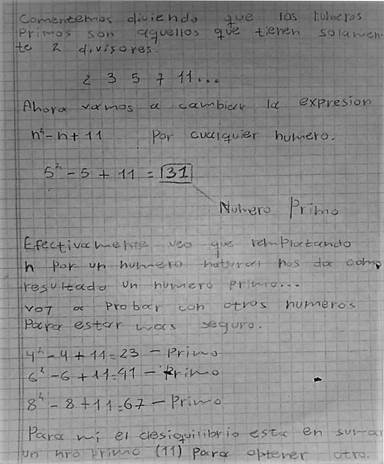 Comentemos diviendo que los números
Primos son aquellos que tienen solamen
te 2 divisores.
2 3 5 7 11...
Ahora vamos a cambiar la expresion
n²-n+11 Por cualquier numero.
5²-5+11=31
Numero Primo
Efectivamente veo que remplazando
n Por un numero natural nos da como
resultado un numero primo...
voy a Probar con otros numeros
Para estar mas seguro.
4²-4+11=23 - Primo
6²-6+11=41 - Primo
8²-8+11=67 - Primo
Para mi el desiquilibrio esta en sumar
un nro primo (11) Para obtener otro.